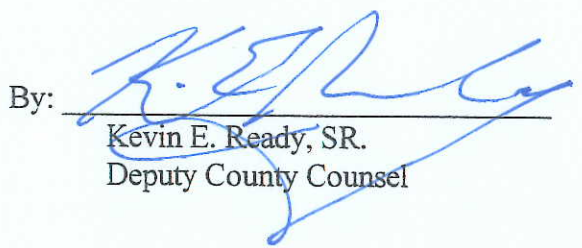 By:
Kevin E. Ready, SR.
Deputy County Counsel